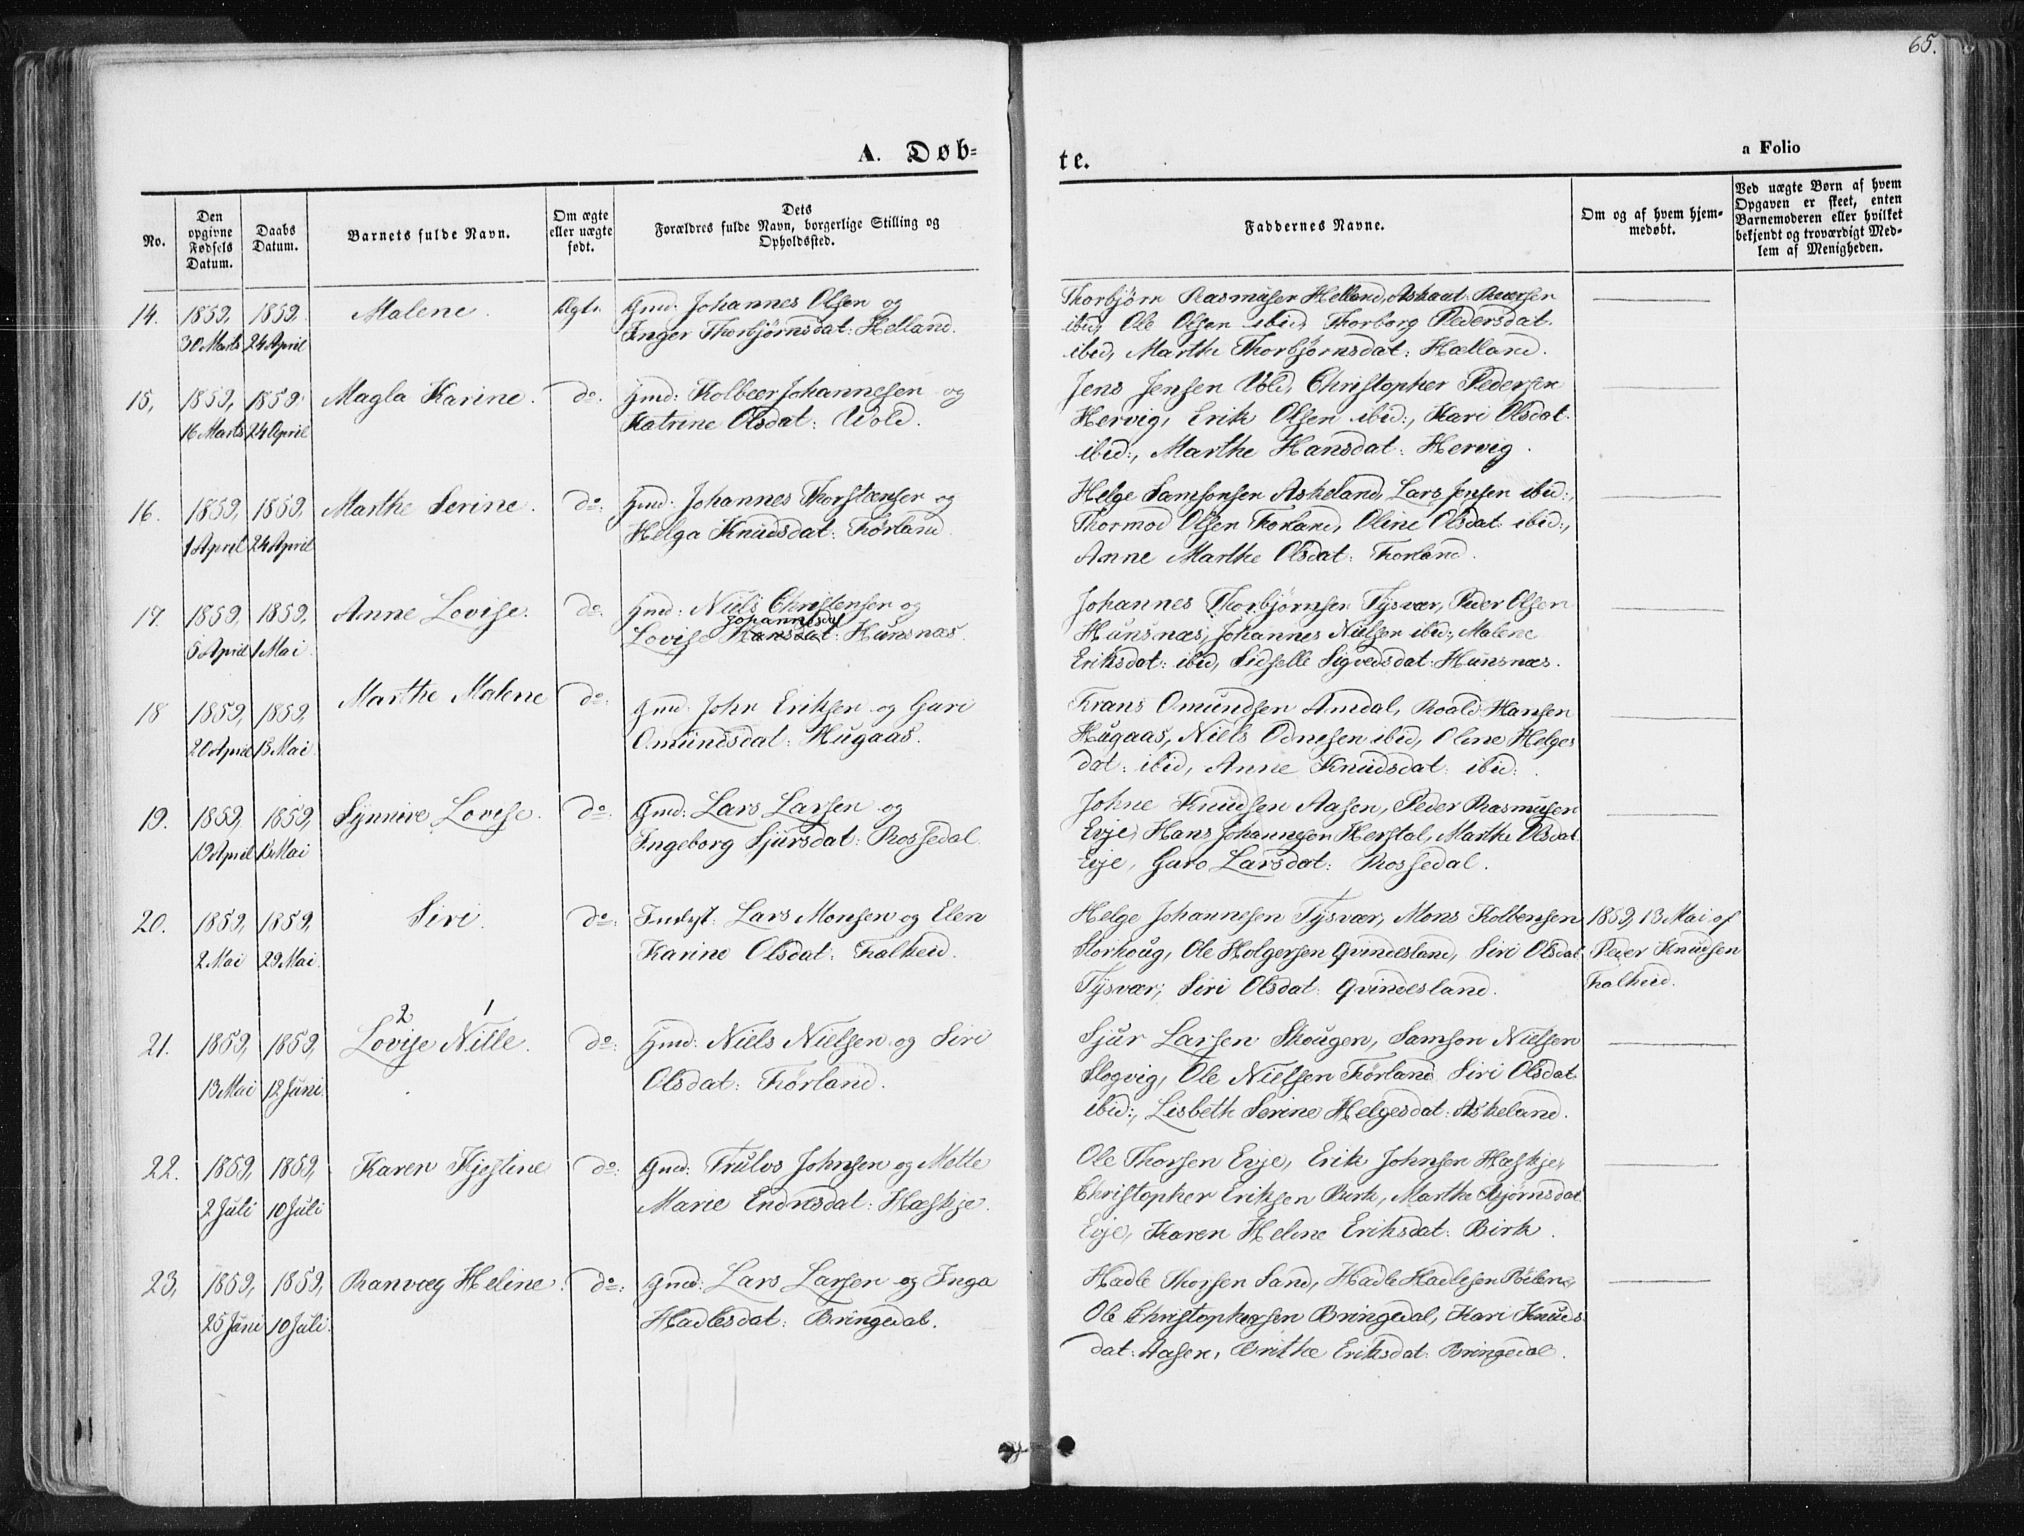 65.
A. Døb-
te.
a Folio
No.
Den opgivne Fødsels Datum.
Daabs Datum.
Barnets fulde Navn.
Om ægte eller uægte født.
Dets Forældres fulde Navn, borgerlige Stilling og Opholdssted.
Faddernes Navne.
Om og af hvem hjemmedøbt.
Ved uægte Børn af hvem Opgaven er skeet, enten Barnemoderen eller hvilket bekjendt og troværdigt Medlem af Menigheden.
14. 1859, 1859. Malene. Ægte. Gmd: Johannes Olsen og
30 Marts 24 April Inger Thorbjørnsdat: Helland.
Thorbjørn Rasmusen Helland,
ibid, Ole Olsen ibid, Thorborg Pedersdat:
ibid, Marthe Thorbjørnsdat: Hælland.
15, 1859, 1859. Magla Karine. do: Gmd: Kolbeer Johannesen og
16 Marts 24 April Katrine Olsdat: Wold.
Jens Jensen Vold, Christopher Pedersen
Hervig, Erik Olsen ibid:, Kari Olsdat:
ibid:, Marthe Hansdat: Hervig.
16. 1859, 1859, Marthe Serine. do: Gmd: Johannes Thorstensen og
1 April 24 April Helga Knudsdat: Førland.
Helge Samsonsen Askeland, Lars Jensen ibid:,
Thormod Olsen Førland, Oline Olsdat: ibid:,
Anne Marthe Olsdat: Førland.
17. 1859, 1859, Anne Lovise. do: Gmd: Niels Christensen og
Johannesdat
5 April 1 Mai Lovise Hansdat: Hunsnæs.
Johannes Thorbjørnsen Tysvær, Peder Olsen
Hunsnæs, Johannes Nielsen ibid:, Malene
Eriksdat: ibid, Sidselle Sigvedsdat: Hunsnæs.
18 1859, 1859, Marthe Malene do: Gmd: John Eriksen og Guri
20 April 15 Mai Omundsdat: Hugaas.
Frans Omundsen Amdal, Roald Hansen
Hugaas, Niels Odnesen ibid, Oline Helges
dat: ibid, Anne Knudsdat: ibid:.
19. 1859, 1859, Synnive Lovise. do: Gmd: Lars Larsen og
19 April 15 Mai Ingeborg Sjursdat: Rossedal.
Johne Knudsen Aasen, Peder Rasmusen
Evje, Hans Johannesen Herstal, Marthe Olsdat
Evje, Guro Larsdat: Rossedal.
20. 1859, 1859, Siri. do: Inderst: Lars Monsen og Elen
2 Mai 29 Mai. Karine Olsdat: Falheid.
Helge Johannesen Tysvær, Mons Kolbensen
Storhoug, Ole Holgersen Qvindesland, Siri Olsdat
Tysvær, Siri Olsdat: Qvindesland.
1859, 13 Mai af
Peder Knudsen
Falheid.
2 1
21. 1859, 1859, Lovise Nille. do: Gmd: Niels Nielsen og Siri
13 Mai 12 Juni. Olsdat: Førland.
Sjur Larsen Skougen, Samson Nielsen
Slogvig, Ole Nielsen Førland Siri Olsdat:
ibid:, Lisbeth Serine Helgesdat: Askeland.
22. 1859, 1859, Karen Kjistine do: Gmd: Truls Johnsen og Mette
2 Juli 10 Juli Marie Endresdat: Hæskje.
Ole Thorsen Evje, Erik Johnsen Hæskje,
Christopher Eriksen Birk, Marthe Bjørnsdat
Evje, Karen Helene Eriksdat: Birk.
23, 1859, 1859, Ranvæg Heline. do: Gmd: Lars Larsen og Inga
25 Juni 10 Juli. Hadlesdat: Bringedal.
Hadle Thorsen Sand, Hadle Hadlesen
Ole Christophersen Bringedal, Kari Knuds
dat: Aasen, Brithe Eriksdat: Bringedal.